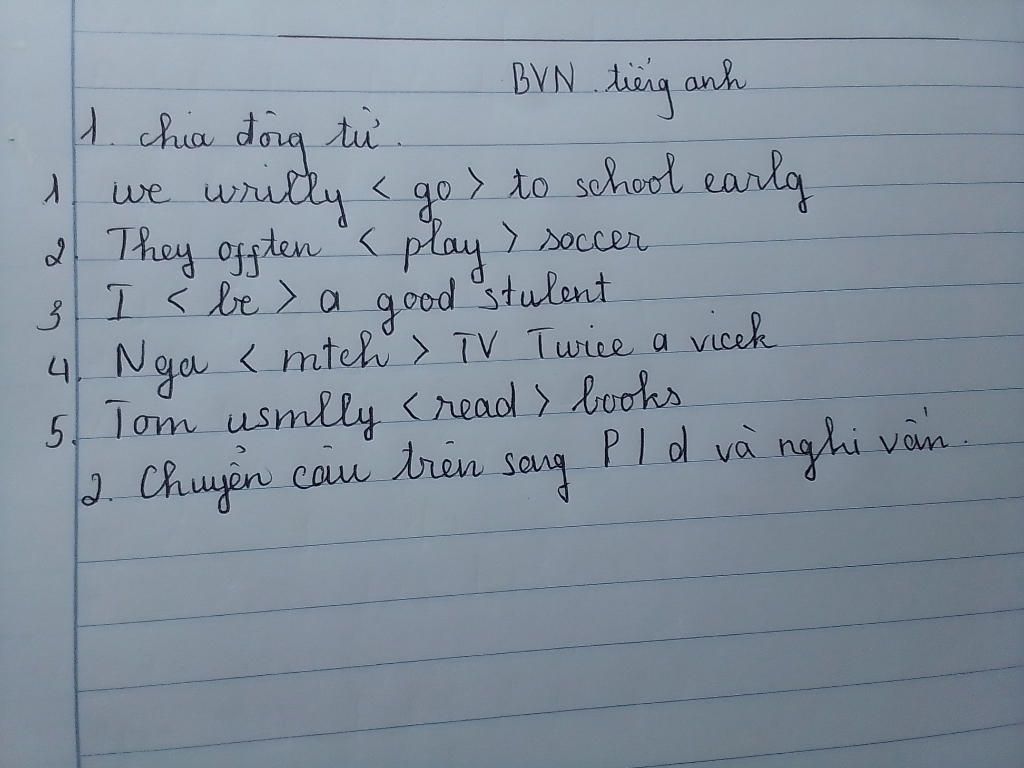 BVN. tiếng anh
1. chia động từ.
1 we writly < go > to school earlg
2 They offten < play > soccer
3 I < be > a good stulent
4. Nga < mtch > TV Twice a vicek
5. Tom usmlly < read > books
2. Chuyển câu trên sang P / d và nghi vấn.